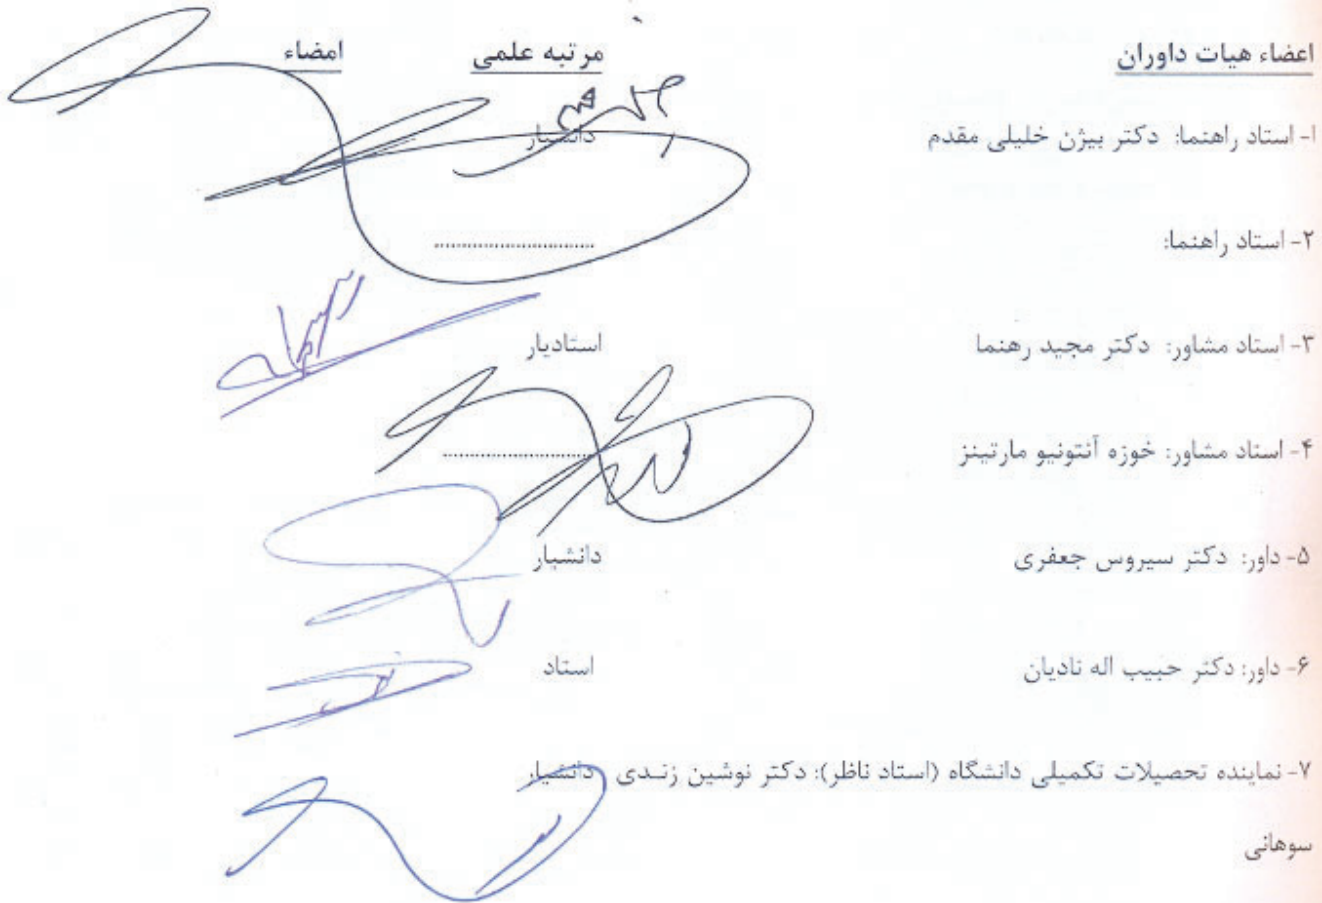 اعضاء هیات داوران مرتبه علمی امضاء
۱- استاد راهنما: دکتر بیژن خلیلی مقدم دانشیار
۲- استاد راهنما: ........................
۳- استاد مشاور: دکتر مجید رهنما استادیار
۴- استاد مشاور: خوزه آنتونیو مارتینز ........................
۵- داور: دکتر سیروس جعفری دانشیار
۶- داور: دکتر حبیب اله نادیان استاد
۷- نماینده تحصیلات تکمیلی دانشگاه (استاد ناظر): دکتر نوشین زنـدی دانشیار
سوهانی